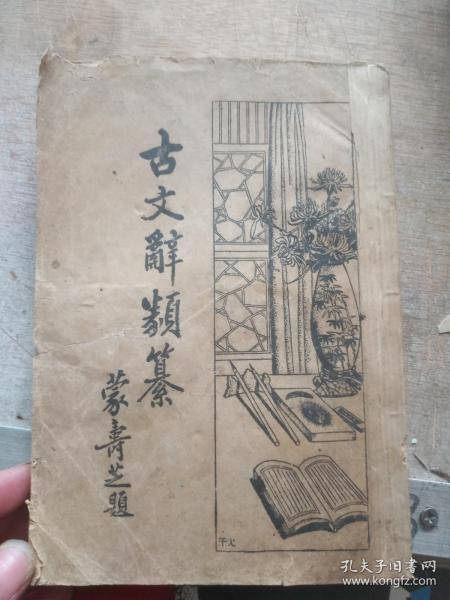 古文辭類纂
蒙壽芝題
孔夫子旧书网
www.kongfz.com